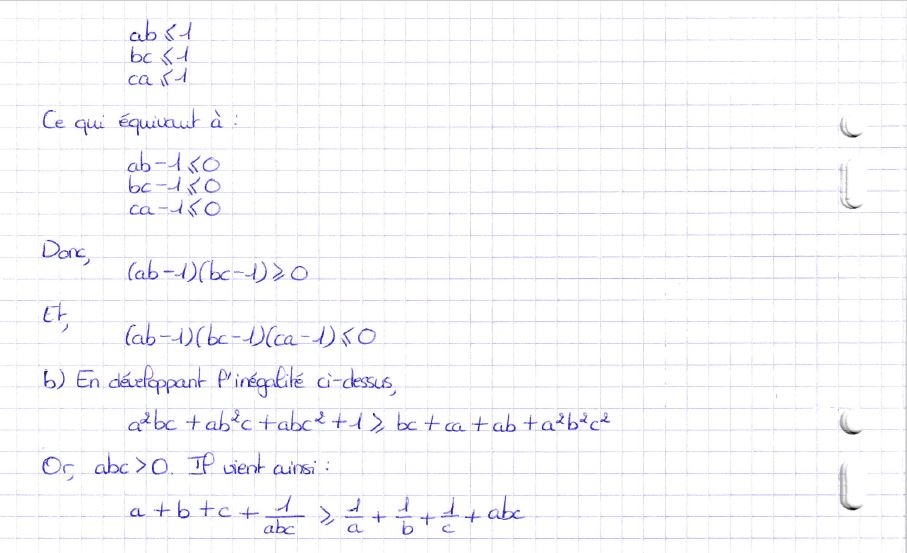 ab ⩽ 1
bc ⩽ 1
ca ⩽ 1
Ce qui équivaut à :
ab - 1 ⩽ 0
bc - 1 ⩽ 0
ca - 1 ⩽ 0
Donc,
(ab - 1)(bc - 1) ⩾ 0
Et,
(ab - 1)(bc - 1)(ca - 1) ⩽ 0
b) En développant l'inégalité ci-dessus,
a²bc + ab²c + abc² + 1 ⩾ bc + ca + ab + a²b²c²
Or, abc > 0. Il vient ainsi :
a + b + c + 1/abc ⩾ 1/a + 1/b + 1/c + abc